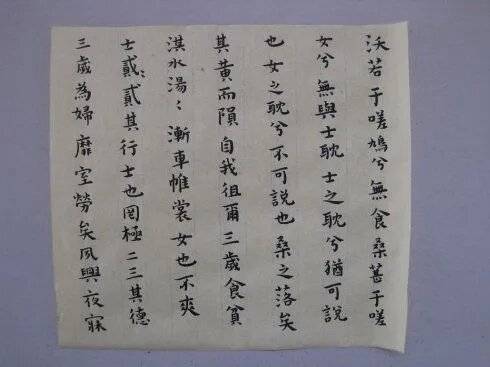 沃若于嗟鳩兮無食桑葚于嗟
女兮無與士耽士之耽兮猶可說
也女之耽兮不可說也桑之落矣
其黃而隕自我徂爾三歲食貧
淇水湯〻漸車帷裳女也不爽
士貳〻貳其行士也罔極二三其德
三歲為婦靡室勞矣夙興夜寐